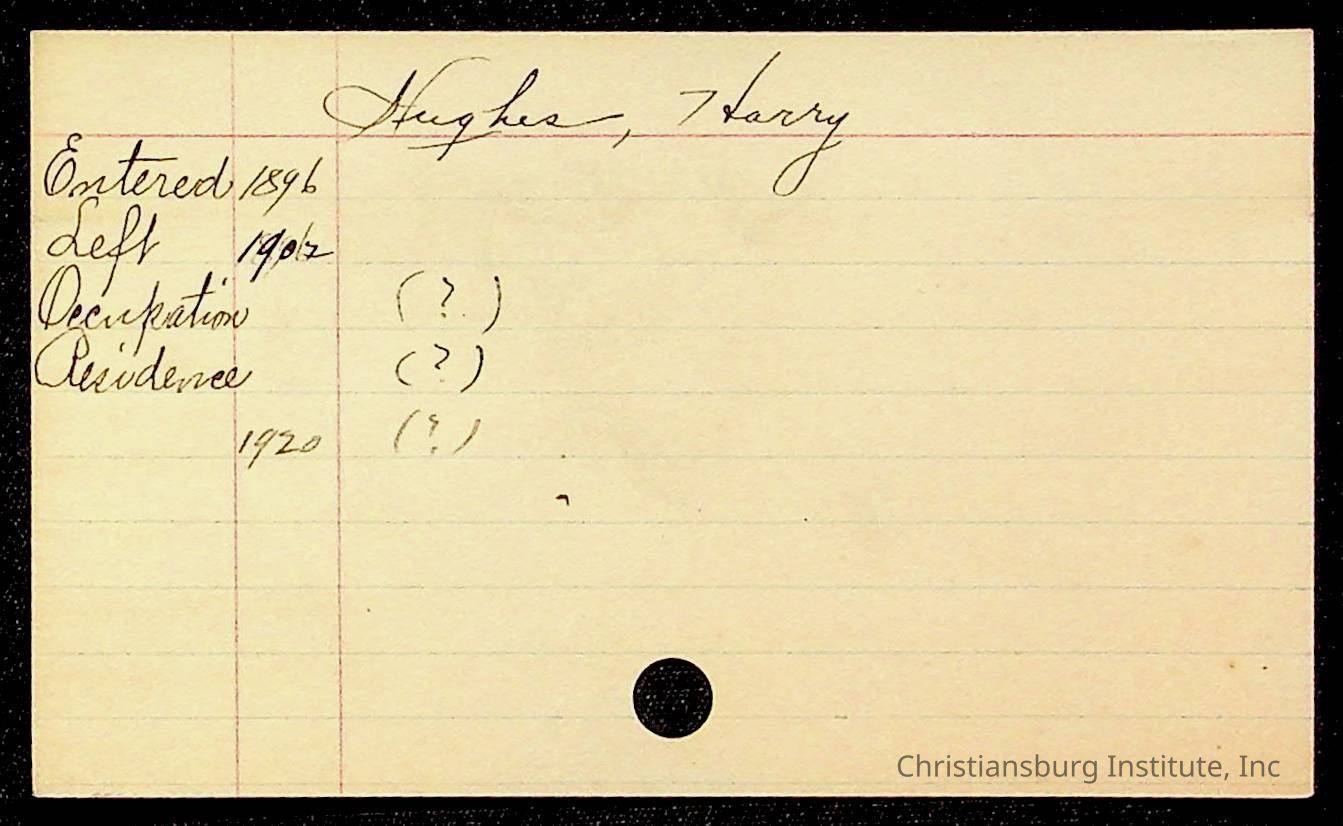 Hughes, Harry
Entered 1896
Left 1902
Occupation (?)
Residence (?)
1920 (?)
Christiansburg Institute, Inc